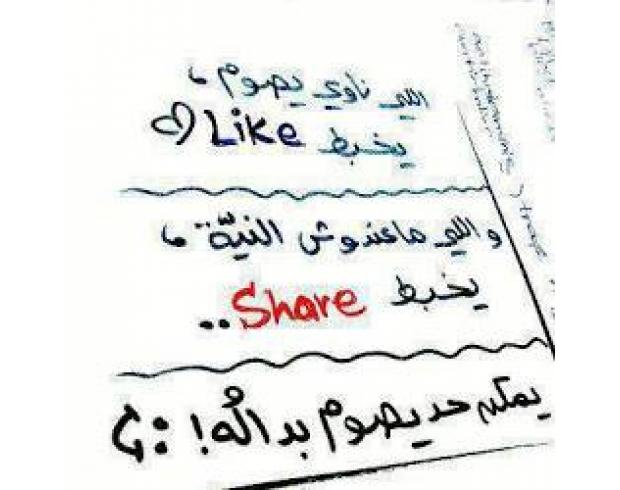 اللي ناوي يصوم،
يخبط Like ♡
واللي ماعندوش النيّة،
يخبط Share ..
يمكن حد يصوم بداله! :)